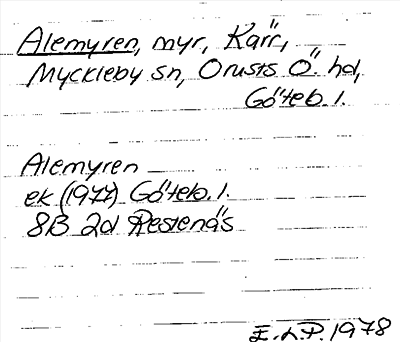 Alemyren, myr, Kärr,
Myckleby sn, Orusts Ö. hd,
Göteb. l.
Alemyren
ek (1977) Göteb. l.
8B 2d Restenäs
E.L.P. 1978